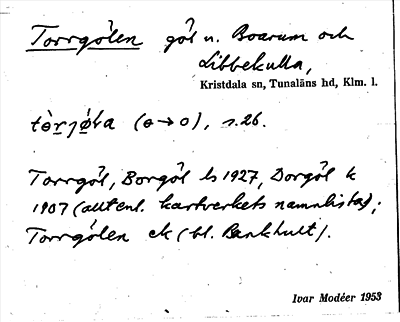 Torrgölen göl n. Boarum och
Libbekulla,
Kristdala sn, Tunaläns hd, Klm. l.
(ɵ→o), s. 26.
Torrgöl, Borgöl ls 1927, Dorgöl k
1907 (allt enl. kartverkets namnlista);
Torrgölen ek (bl. Bankhult).
Ivar Modéer 1953